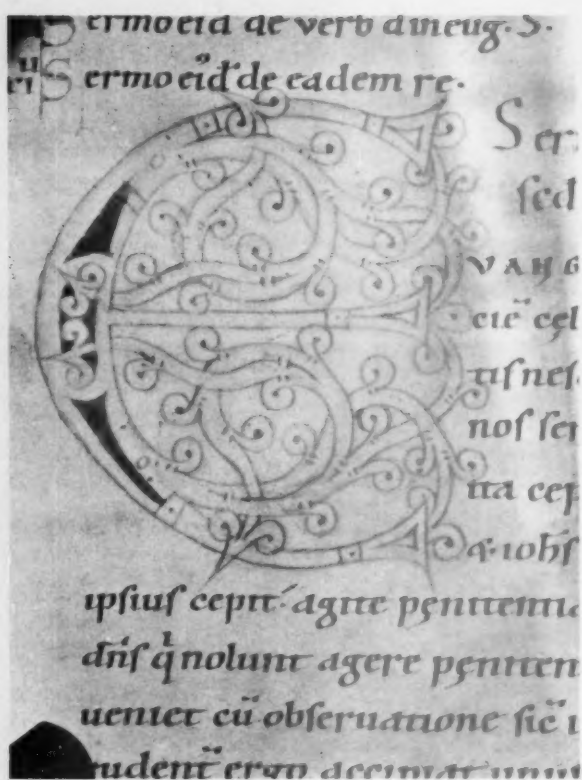 Sermo eid de verb d in eug. S.
Sermo eid de eadem re.
Ser
sed
E VANG
cie cel
tis nes
nos ser
ita cep
q. iohs
ipsius cepit. agite penitentia
dns qi nolunt agere peniten
ueniet cū obseruatione sic
uident ergo